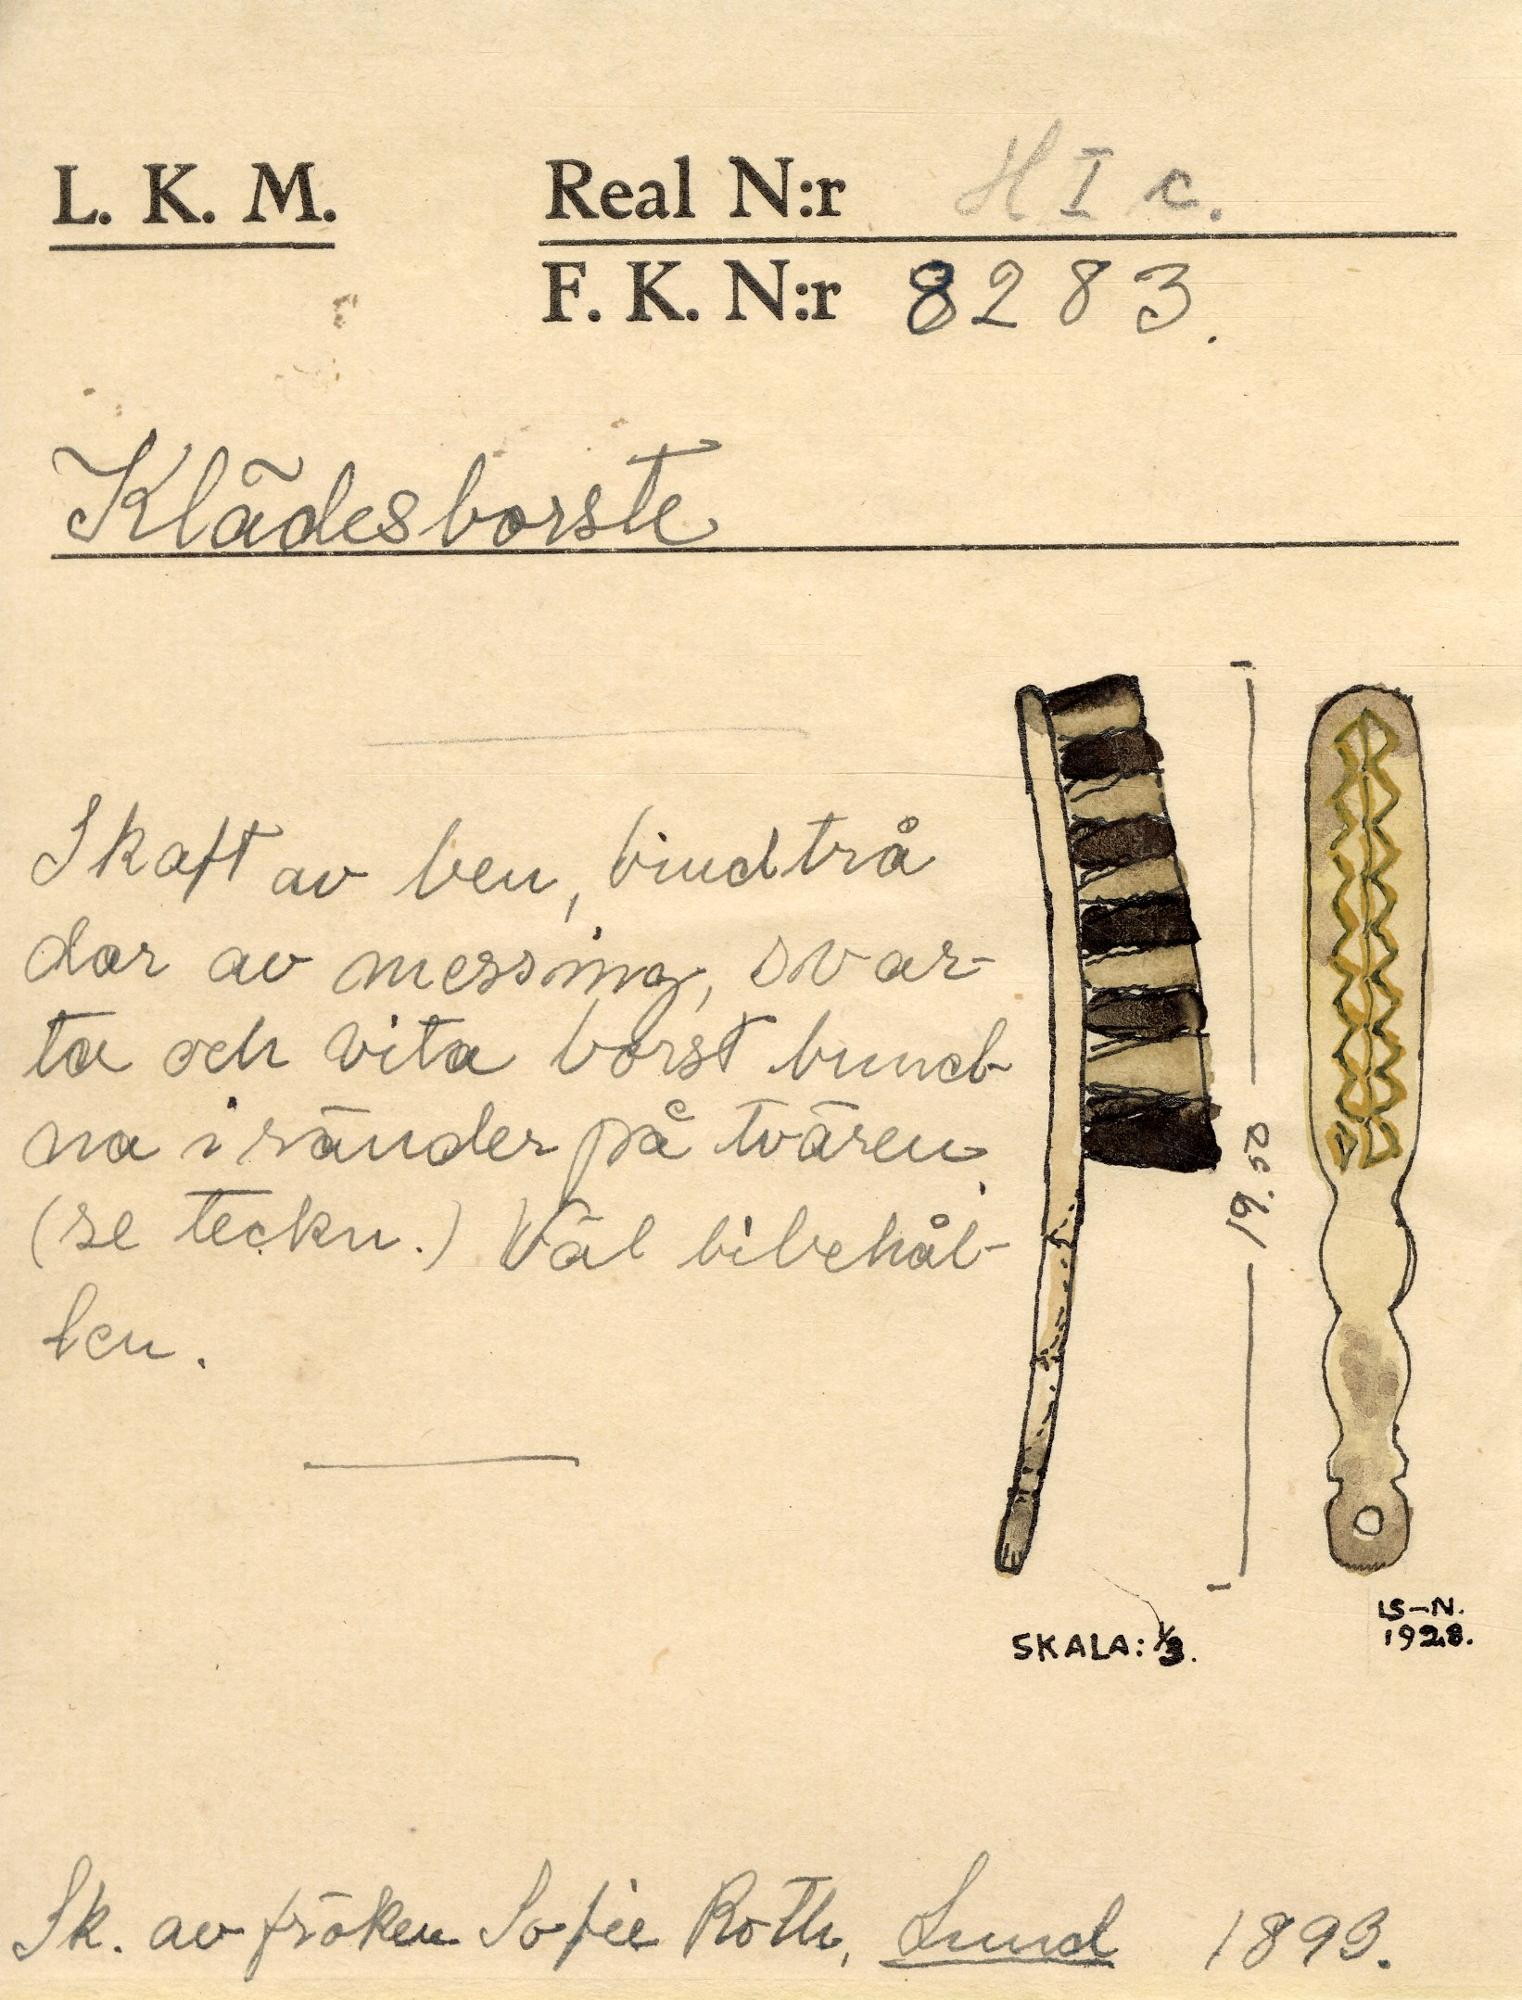 L. K. M.
Real N:r H I c.
F. K. N:r 8283.
Klädesborste
Skaft av ben, bindtrå
dar av messing, svar-
ta och vita borst bund-
na i ränder på tvären.
(se teckn.) Väl bibehål-
len.
19.50
SKALA: 1/3.
IS-N.
1928.
Sk. av fröken Sofie Roth, Lund 1893.